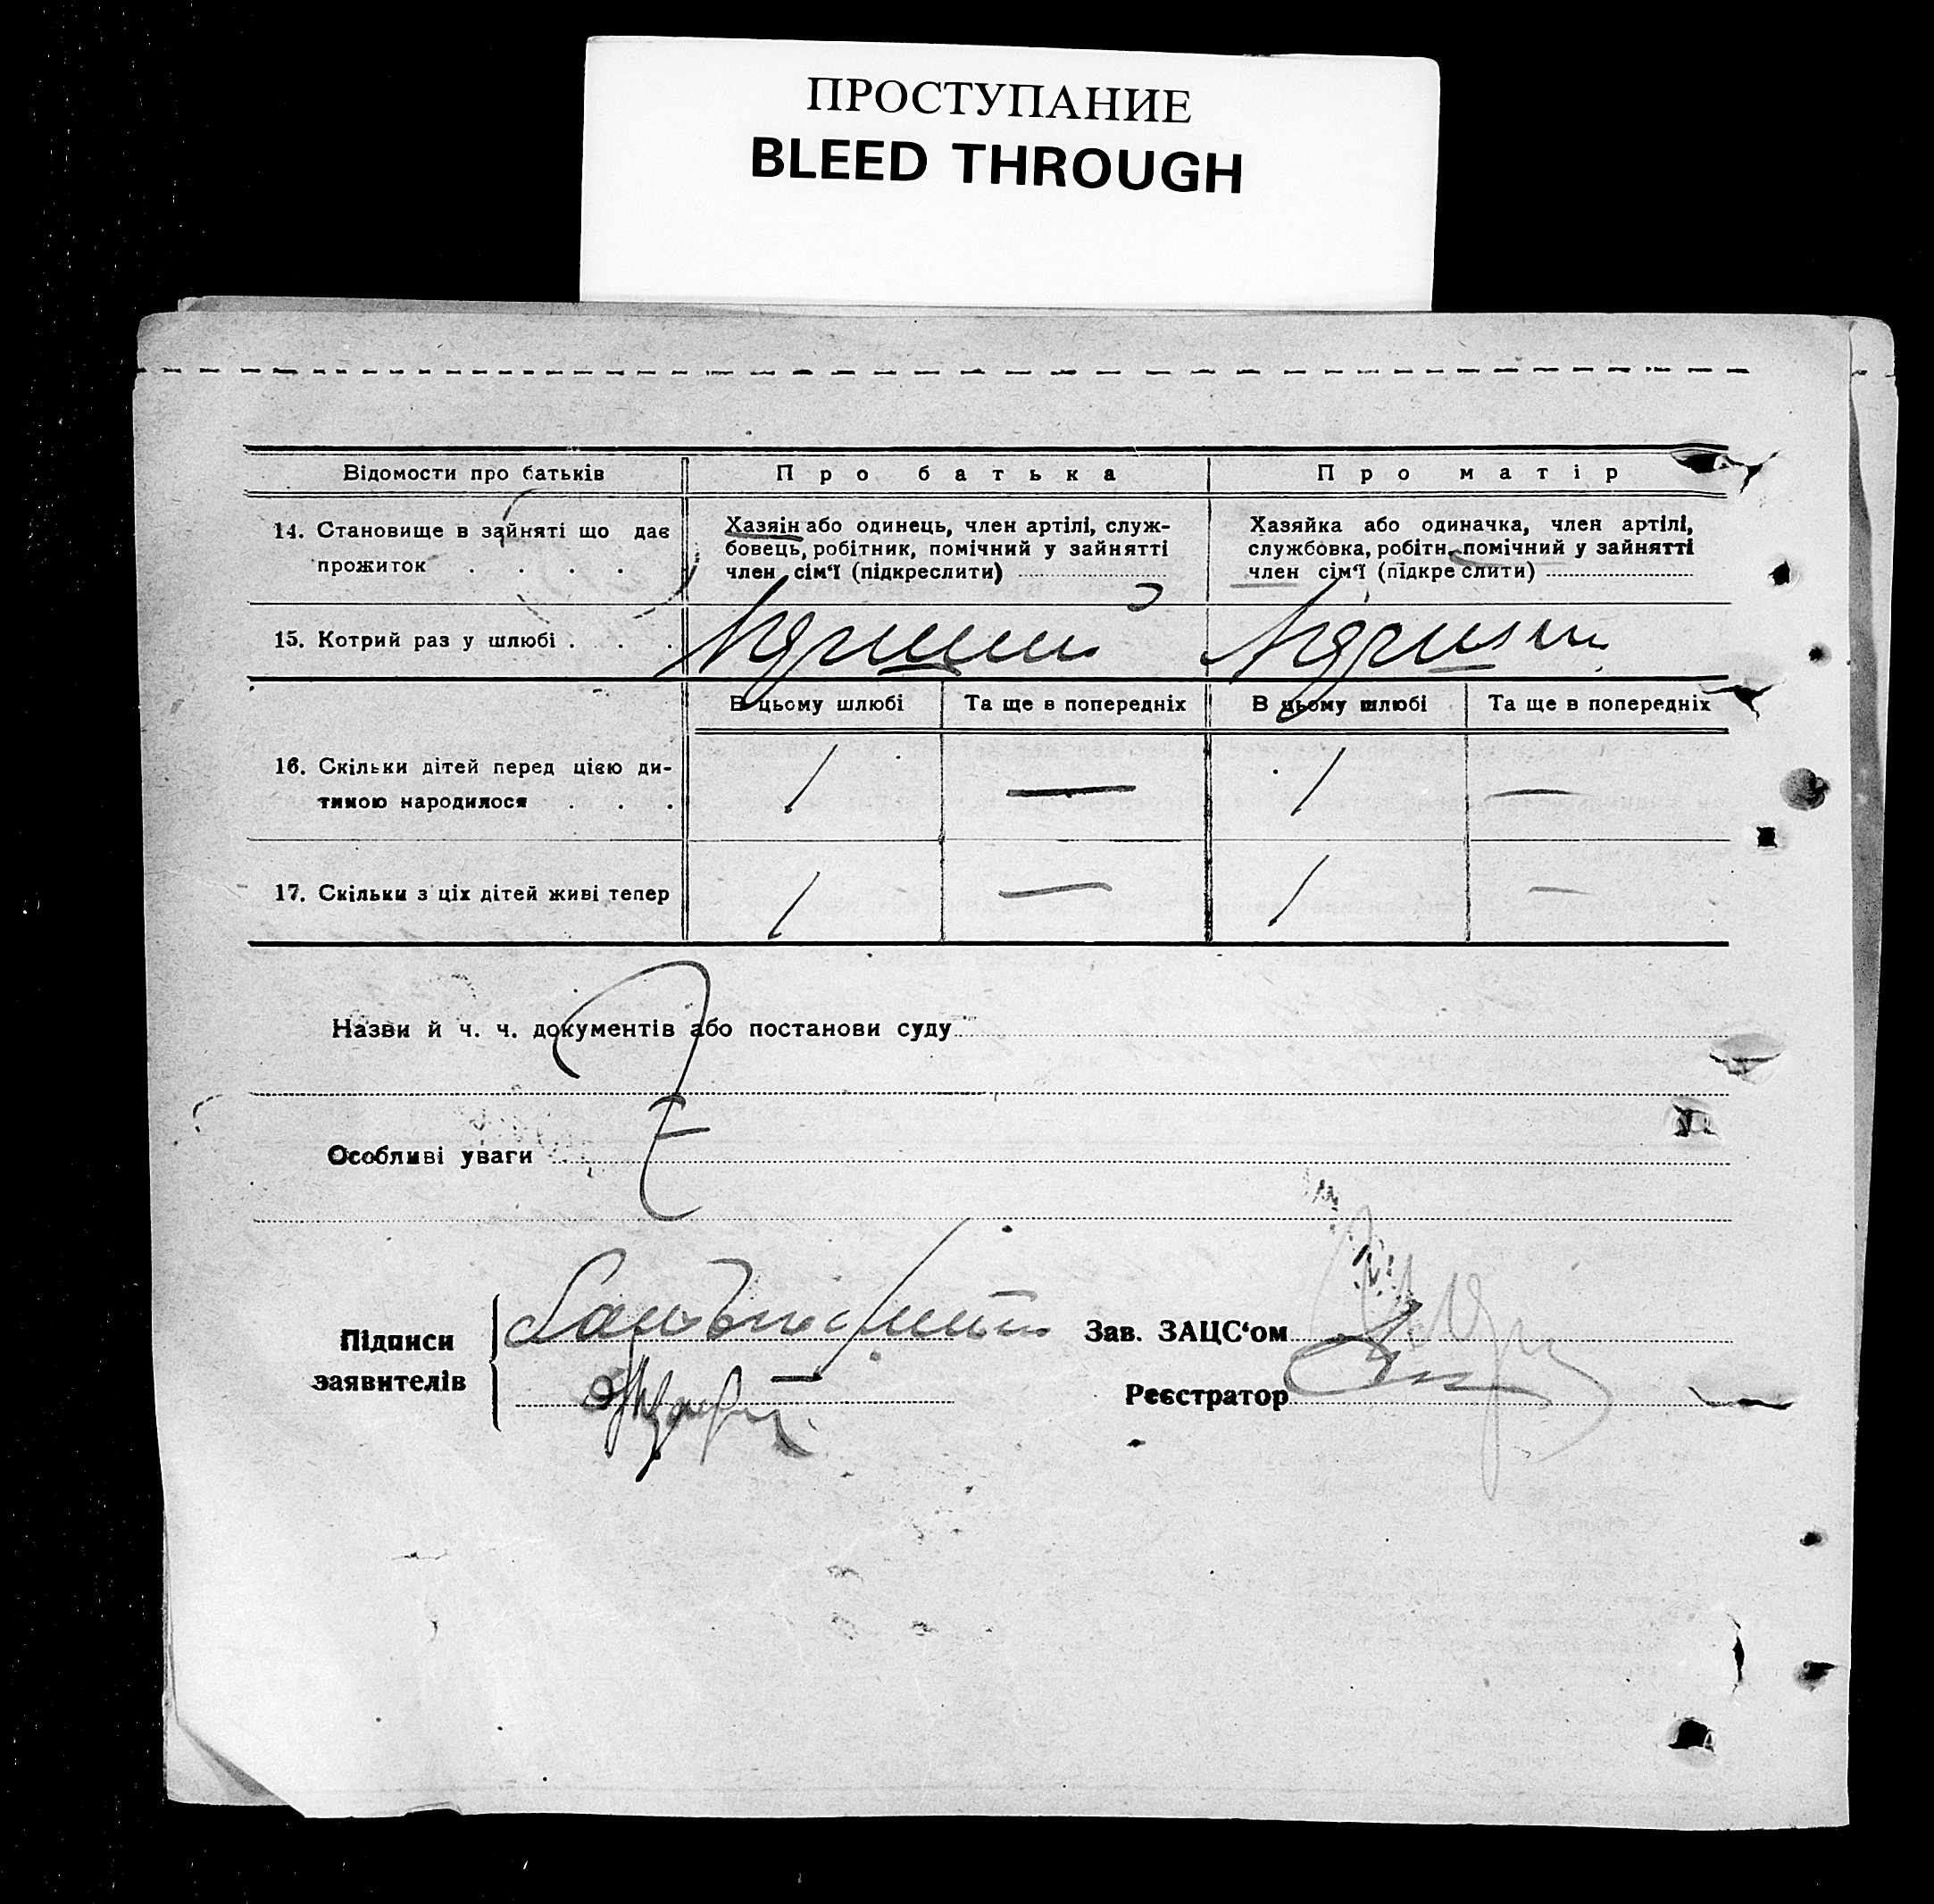 ПРОСТУПАНИЕ
BLEED THROUGH
Відомости про батьків
Про батька
Про матір
14. Становище в зайняті що дає
прожиток . . . .
Хазяін або одинець, член артілі, служ-
бовець, робітник, помічний у зайнятті
член сім'ї (підкреслити)
Хазяйка або одиначка, член артілі,
службовка, робітн. помічний у зайнятті
член сім'ї (підкреслити)
15. Котрий раз у шлюбі . . .
В цьому шлюбі
Та ще в попередніх
В цьому шлюбі
Та ще в попередніх
16. Скільки дітей перед цією ди-
тиною народилося . . .
1 — 1 —
17. Скільки з ціх дітей живі тепер
1 — 1 —
Назви й ч. ч. документів або постанови суду
Особливі уваги
Підписи
заявителів
Зав. ЗАЦС'ом
Реєстратор